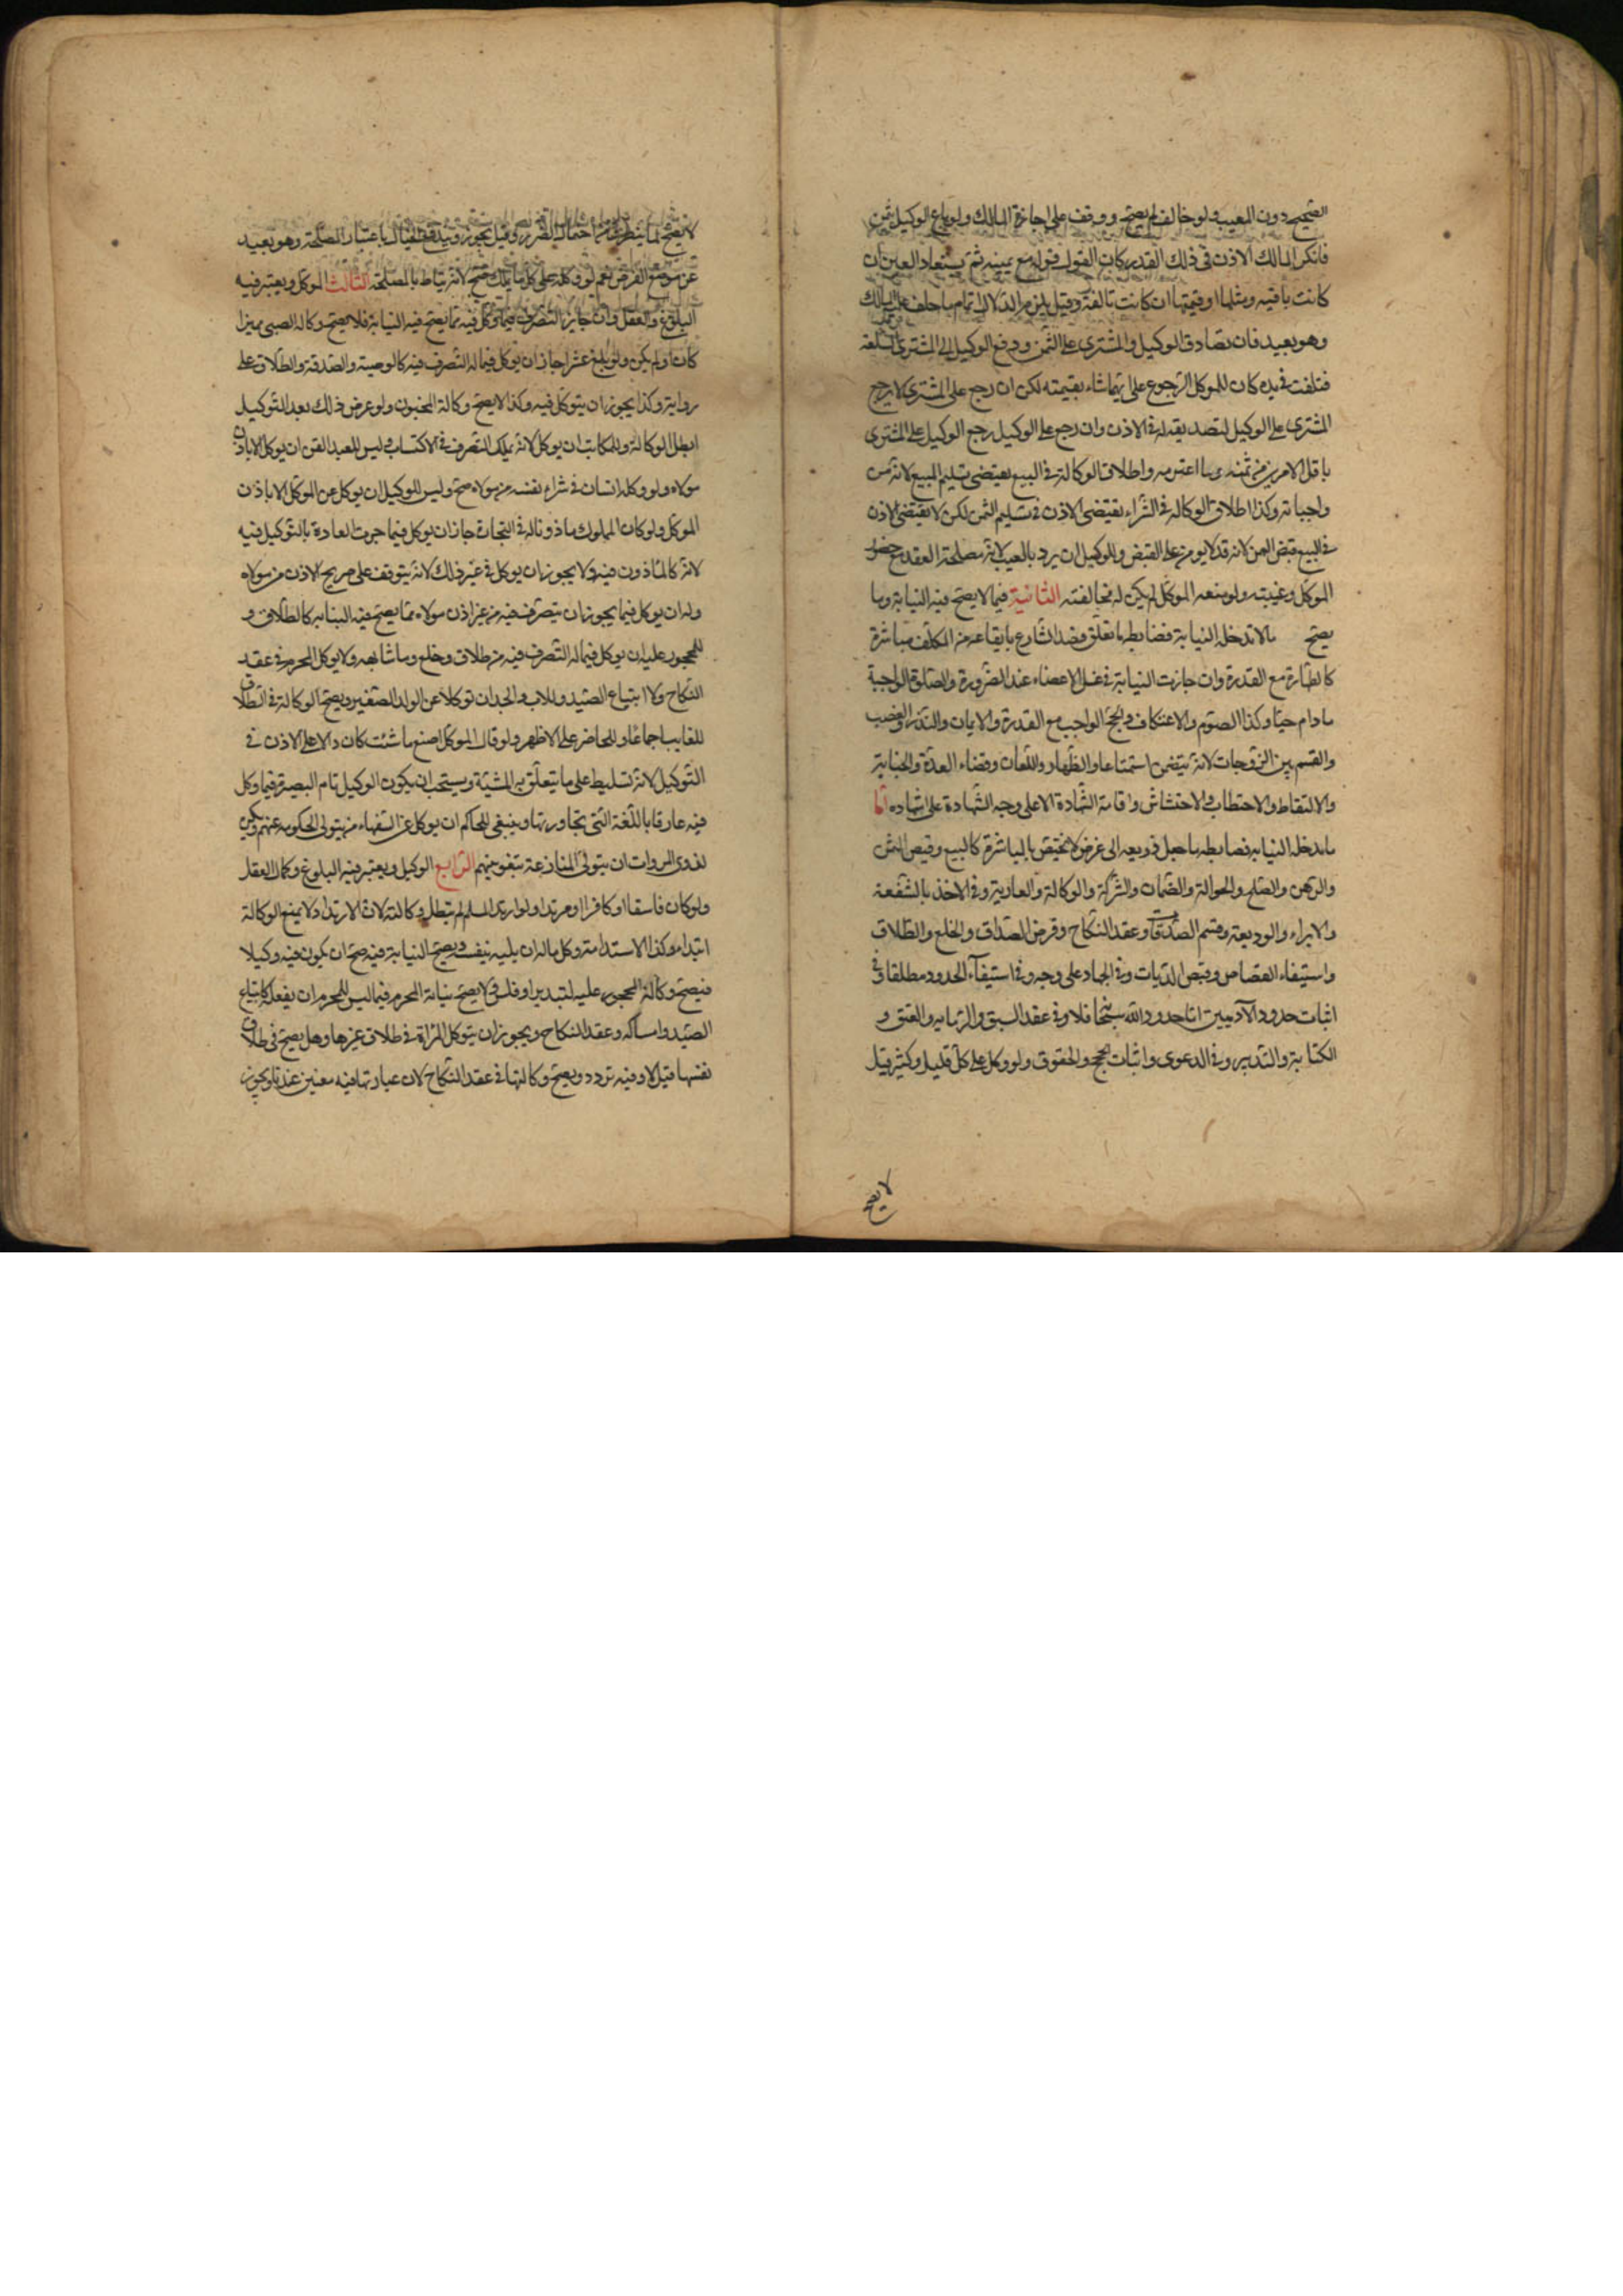 الصحيح دون المعيب ولو خالف لم يصح ووقف على اجازة المالك ولو باع الوكيل بثمن
فانكر المالك الاذن فى ذلك القدر كان القول قوله مع يمينه ثم يستعاد العين ان
كانت باقيه ومثلها او قيمتها ان كانت تالفة وقيل يلزم الدلال اتمام ما حلف عليه المالك
وهو بعيد فان تصادق الوكيل والمشترى على الثمن ودفع الوكيل الى المشترى السلعة
فتلفت فى يده كان للموكل الرجوع على ايهما شاء بقيمته لكن ان رجع على المشترى لا يرجع
المشترى على الوكيل لتصديقه له فى الاذن وان رجع على الوكيل رجع الوكيل على المشترى
باقل الامرين من ثمنه وما اغترمه واطلاق الوكالة فى البيع يقتضى تسليم المبيع لانه من
واجباته وكذا اطلاق الوكالة فى الشراء يقتضى الاذن فى تسليم الثمن لكن لا يقتضى الاذن
فى البيع قبض الثمن لانه قد لا يومن على القبض وللوكيل ان يرد بالعيب لانه مصلحة العقد مع حضور
الموكل وغيبته ولو منعه الموكل لم يكن له مخالفته الثانية فيما لا يصح فيه النيابة وما
يصح ما لا تدخله النيابة فضابطه ما تعلق قصد الشارع بايقاعه من المكلف مباشرة
كالطهارة مع القدرة وان جازت النيابة فى غسل الاعضاء عند الضرورة والصلوة الواجبة
ما دام حيا وكذا الصوم والاعتكاف والحج الواجب مع القدرة والايمان والنذر والغصب
والقسم بين الزوجات لانه يتضمن استمتاعا والظهار واللعان وقضاء العدة والجناية
والالتقاط والاحتطاب والاحتشاش واقامة الشهادة الا على وجه الشهادة على شهاده اما
ما تدخله النيابه فضابطه ما جعل ذريعه الى غرض لا يختص بالمباشرة كالبيع وقبض الثمن
والرهن والصلح والحوالة والضمان والشركة والوكالة والعارية وفى الاخذ بالشفعة
والابراء والوديعة وقسم الصدقات وعقد النكاح وفرض الصداق والخلع والطلاق
واستيفاء القصاص وقبض الديات وفى الجهاد على وجه وفى استيفآء الحدود مطلقا وفى
اثبات حدود الآدميين اما حدود الله سبحانه فلا وفى عقد السبق والرمايه والعتق و
الكتابة والتدبير وفى الدعوى واثبات الحجج والحقوق ولو وكل على كل قليل وكثير قيل
لا يصح
لا يصح لما يتطرق من احتمال الضرر وقيل يجوز ويندفع الحال باعتبار المصلحة وهو بعيد
عن موضع الفرض نعم لو وكله على كل ما يملك صح لانه يناط بالمصلحة الثالث الموكل ويعتبر فيه
البلوغ والعقل وان جايز التصرف فيما وكل فيه مما يصح فيه النيابة فلا يصح وكالة الصبى مميزا
كان او لم يكن ولو بلغ عشرا جاز ان يوكل فيما له التصرف فيه كالوصية والصدقة والطلاق على
رواية وكذا يجوز ان يتوكل فيه وكذا لا يصح وكالة المجنون ولو عرض ذلك بعد التوكيل
ابطل الوكالة وللمكاتب ان يوكل لانه يملك التصرف فى الاكتساب وليس للعبد القن ان يوكل الا باذن
مولاه ولو وكله انسان فى شراء نفسه من مولاه صح وليس للوكيل ان يوكل عن الموكل الا باذن
الموكل ولو كان المملوك ماذونا له فى التجارة جاز ان يوكل فيما جرت العادة بالتوكيل فيه
لانه كالماذون فيه ولا يجوز ان يوكل فى غير ذلك لانه يتوقف على صريح الاذن من مولاه
وله ان يوكل فيما يجوز ان يتصرف فيه من غير اذن مولاه مما يصح فيه النيابه كالطلاق و
للمحجور عليه ان يوكل فيما له التصرف فيه من طلاق وخلع وما شابهه ولا يوكل المحرم فى عقد
النكاح ولا ابتياع الصيد وللاب والجد ان توكلا عن الولد الصغير ويصح الوكالة فى الطلاق
للغايب اجماعا وللحاضر على الاظهر ولو قال الموكل اصنع ما شئت كان دالا على الاذن فى
التوكيل لانه تسليط على ما يتعلق به المشية ويستحب ان يكون الوكيل تام البصيرة فيما وكل
فيه عارفا باللغة التى يحاور بها وينبغى للحاكم ان يوكل عن السفهاء من يتولى الحكومه عنهم ويكره
لذوى المروات ان يتولى المنازعة بنفوسهم الرابع الوكيل ويعتبر فيه البلوغ وكمال العقل
ولو كان فاسقا او كافرا او مرتدا ولو ارتد المسلم لم يبطل وكالته لان الارتداد لا يمنع الوكالة
ابتداء وكذا الاستدامة وكل ما له ان يليه بنفسه ويصح النيابة فيه صح ان يكون فيه وكيلا
فيصح وكالة المحجور عليه لتبذير او فلس ولا يصح نيابة المحرم فيما ليس للمحرم ان يفعله كابتياع
الصيد وامساكه وعقد النكاح ويجوز ان يتوكل المرأة فى طلاق غيرها وهل يصح فى طلاق
نفسها قيل لا وفيه تردد ويصح وكالتها فى عقد النكاح لان عبارتها فيه معتبرة عندنا ويجوز